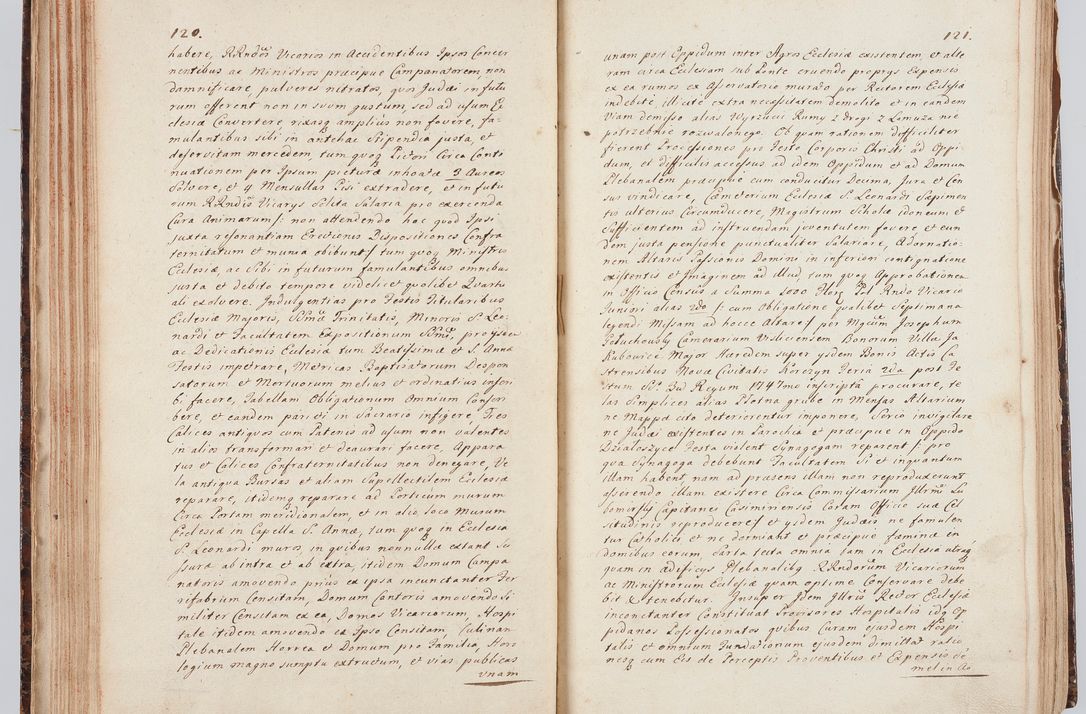 120.
habere, RRndos Vicarios in Accidentibus Ipsos Concer
nentibus ac Ministros præcipue Campanatorem, non
damnificare, pulveres nitratos, quos Judæi in futu
rum offerent non in suum gustum, sed ad usum Ec
clesiæ Convertere rixasq amplius non fovere, fa-
mulantibus sibi in antehac Stipendia justa, et
deservitam mercedem, tum quoq Pictori Circa Conti
nuationem per Ipsum picturæ inhoatæ 3 Aureos
Solvere, et 4 Mensullas Pisi extradere, et in futu
rum RRndis Vicarys Solita Salaria pro exercenda
Cura Animarum /: non attendendo hoc quod Ipsi
juxta resonantiam Erectionis Dispositiones Confra
ternitatum et munia obibunt / tum quoq Ministris
Ecclesiæ, ac Sibi in futurum famulantibus omnibus
justa et debito tempore videlicet quolibet Quartu
ali exolvere. Indulgentias pro Festis Titularibus
Ecclesiæ Majoris, SSmæ Trinitatis, Minoris S. Leo-
nardi et Facultatem Expositionum SSmi, pro ysdem
ac Dedicationis Ecclesiæ tum Beatissimæ et S. Annæ
Festis impetrare, Metricas Baptisatorum Despon
satorum et Mortuorum melius et ordinatius inscri
bi facere, Tabellam Obligationum Omnium Conscri
bere, et eandem parieti in Sacrario infigere, Tres
Calices antiquos cum Patenis ad usum non valentes
in alios transformari et deaurari facere, Appara
tus et Calices Confraternitatibus non denegare, Ve
la antiqua Bursas et aliam Supellectilem Ecclesiæ
reparare, itidemq reparare ad Porticum murum
Circa Portam meridionalem, et in alio loco Murum
Ecclesiæ in Capella S. Annæ, tum quoq in Ecclesia
S. Leonardi muros, in quibus nonnullæ extant Scis
suræ ab intra et ab extra, itidem Domum Campa
natoris amovendo prius ex ipsa incunctanter Fer
rifabrum Censitam, Domum Cantoris amovendo Si
militer Censitam ex ea, Domos Vicariorum, Hospi
tale itidem amovendo ex Ipso Censitam, Culinam
Plebanalem Horrea et Domum pro Familia, Horo
logium magno sumptu extructum, et vias publicas
unam
121.
unam post Oppidum inter Agros Ecclesiæ existentem, et alte
ram circa Ecclesiam sub Ponte eruendo proprys Expensis
ex ea rumos ex Asservatorio murato per Rectorem Ecclesiæ
indebite illicite extra necessitatem demolito et in eandem
Viam demisso alias Wyrzucić Rumy z drogi z Lamuza nie
potrzebnie rozwalonego. Ob quam rationem difficiliter
fierent Processiones pro Festo Corporis Christi ad Oppi
dum, et difficilis accessus ad idem Oppidum et ad Domum
Plebanalem præcipue cum conducitur Decima, Jura et Cen
sus vindicare, Cæmeterium Ecclesiæ S. Leonardi Sæpimen
tis ulterius Circumducere, Magistrum Scholæ idoneum et
Sufficientem ad instruendam juventutem fovere, et eun
dem justa pensione punctualiter Salariare, Adornatio-
nem Altaris Passionis Domini in inferiori contignatione
existentis et Imaginem ad illud, tum quoq Approbationem
in Officio Census a Summa 1000 Flor Pol Rndo Vicario
Juniori alias 2do /: cum Obligatione qualibet Septimana
legendi Missam ad hocce Altare / per Mgcum Josephum
Camerarium Visliciensem Bonorum Villæ Ja
kubowice Major Hæredem super ysdem Bonis Actis Ca
strensibus Novæ Civitatis Korczyn Feria 2da post Fe
stum Sti 3um Regum 1747mo inscriptæ procurare, te
las Simplices alias Płotna grube in Mensas Altarium
ne Mappæ cito deteriorentur imponere, Serio invigilare
ne Judæi existentes in Parochia et præcipue in Oppido
Działoszyce Festa violent Synagogam reparent /: pro
qua Synagoga debebunt Facultatem Si et inquantum
illam habent, nam ad præsens illam non reproduxerunt
asserendo illam existere Circa Commissarium Illrmi Lu
bomirsky Capitanei Casimiriensis Coram Officio suæ Cel
situdinis reproducere / et ysdem Judæis ne famulen
tur Catholici et ne dormiant et præcipue fæminæ in
domibus eorum, Sarta tecta omnia tam in Ecclesia utraq
quam in ædificys Plebanalibq RRndorum Vicariorum
ac Ministrorum Ecclesiæ quam optime Conservare debe
bit et tenebitur. Insuper Idem Illris Rector Ecclesiæ
incunctanter Constituat Provisores Hospitalis idq Op
pidanos Possessionatos quibus Curam ejusdem Hospi
talis et omnium Fundationum ejusdem dimittat ratio
nesq cum Eis de Perceptis Proventibus et Expensis se
mel in An